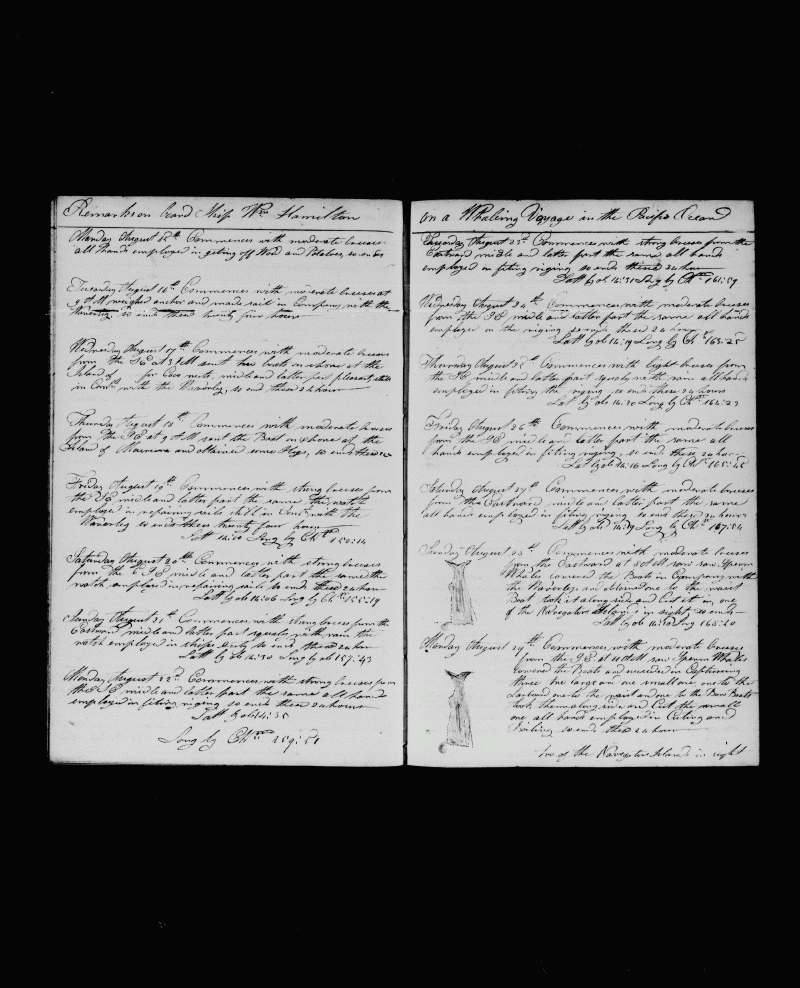 Remarks on board Ship Wm Hamilton
Monday August 15th Commences with moderate breeses
all hands employed in geting off Wood and Potatoes, so ends
Tuesday August 16th Commences with moderate breeses at
9 AM weighed anchor and made sail in Company with the
Waverley, so ends these twenty four hours
Wednesday August 17th Commences with moderate breeses
from the SE at 3 AM sent two boats on shore at the
Island of for Coco nuts, midle and latter part pleasant, still
in Comy with the Waverley, so ends these 24 hours
Thursday August 18th Commences with moderate breeses
from the SE at 9 AM sent the Boat on shore at the
Island of and obtained some Hogs, so ends these 24
Friday August 19th Commences with strong breeses from
the SE midle and latter part the same the watch
employed in repairing sails still in Comy with the
Waverley so ends these twenty four hours
Latt Long by Chr 152:14
Saturday August 20th Commences with strong breeses
from the ESE midle and latter part the same the
watch employed in repairing sails so ends these 24 hours
Latt by ob 14:06 Long by Chr 155:19
Sunday August 21th Commences with strong breeses from the
Eastward midle and latter part squals with rain the
watch employed in ships duty so ends these 24 hours
Latt by ob Long by ob 157:43
Monday August 22d Commences with strong breeses from
the SE midle and latter part the same all hands
employed in fiting riging so ends these 24 hours
Latt by ob 14:35
Long by Chr 159:51
on a Whaling Voyage in the Pacific Ocean
Tuesday August 23d Commences with strong breeses from the
Eastward midle and latter part the same all hands
employed in fiting riging so ends these 24 hours
Latt by ob 14:31 Long by Chr 161:59
Wednesday August 24th Commences with moderate breeses
from the SE midle and latter part the same all hands
employed in the riging so ends these 24 hours
Latt by ob 14:19 Long by Chr 163:25
Thursday August 25th Commences with light breeses from
the SE midle and latter part squaly with rain all hands
employed in fiting the riging so ends these 24 hours
Latt by ob 14:20 Long by Chr 164:23
Friday August 26th Commences with moderate breeses
from the SE midle and latter part the same all
hands employed in fiting riging, so ends these 24 hours
Latt by ob 14:16 Long by Chr 165:45
Saturday August 27th Commences with moderate breeses
from the Eastward midle and latter part the same
all hands employed in fiting riging so ends these 24 hours
Latt by ob 14:19 Long by Chr 167:54
Sunday August 28th Commences with moderate breeses
from the Eastward at AM saw Sperm
Whales lowered the Boats in Company with
the Waverley and obtained one to the waist
Boat took it along side and Cut it in one
of the Navegators in sight so ends
Latt by ob Long 168:40
Monday August 29th Commences with moderate breeses
from the SE at 11 AM saw Sperm Whales
lowered the Boats and succeeded in Capturing
three two large and one small one one to the
Larboard one to the waist and one to the Bow Boats
took them along side and Cut the small
one all hands employed in Cuting and
Boiling so ends these 24 hours
two of the Navegator Islands in sight